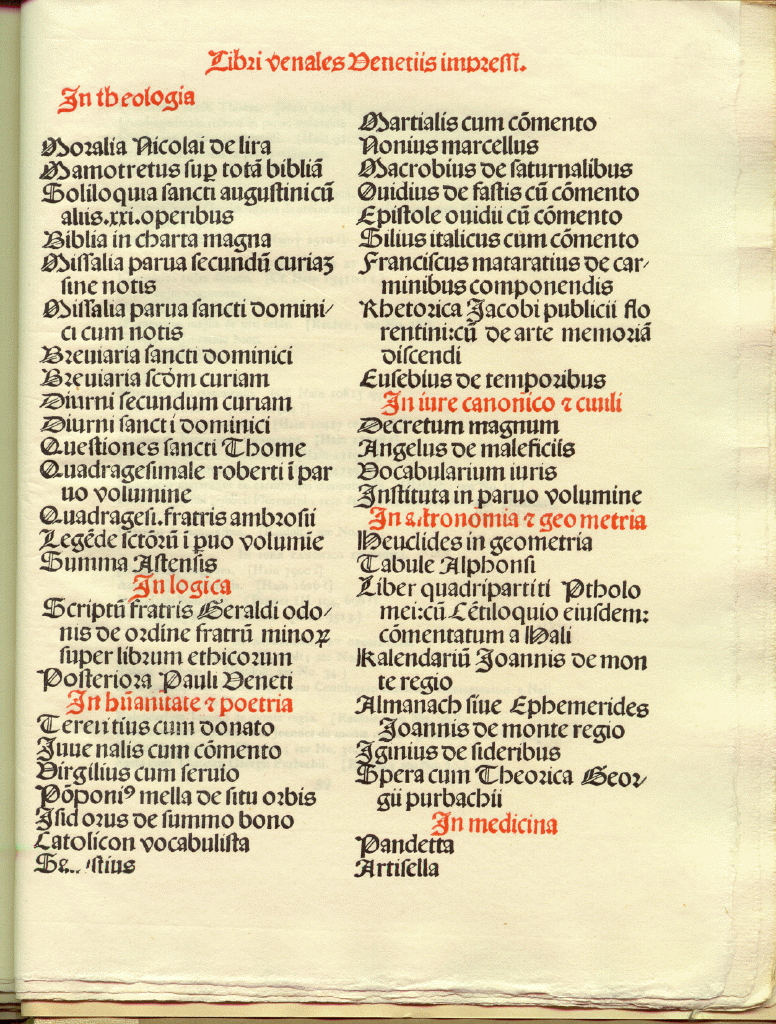 Libri venales Venetiis impressi.
In theologia
Moralia Nicolai de lira
Mamotretus sup̱ totā bibliā
Soliloquia sancti augustini cū
aliis.xxi.operibus
Biblia in charta magna
Missalia parua secundū curiaꝫ
sine notis
Missalia parua sancti domini/
ci cum notis
Breuiaria sancti dominici
Breuiaria scḋm curiam
Diurni secundum curiam
Diurni sancti dominici
Questiones sancti Thome
Quadragesimale roberti ī par
uo volumine
Quadragesi.fratris ambrosii
Legēde sctōrū ī ꝑuo volumie
Summa Astensis
In logica
Scriptū fratris Geraldi odo/
nis de ordine fratrū minoꝝ
super librum ethicorum
Posteriora Pauli Veneti
In hūanitate ⁊ poetria
Terentius cum donato
Juuenalis cum cōmento
Virgilius cum seruio
Pōponiꝰ mella de situ orbis
Isidorus de summo bono
Catolicon vocabulista
Martialis cum cōmento
Nonius marcellus
Macrobius de saturnalibus
Ouidius de fastis cū cōmento
Epistole ouidii cū cōmento
Silius italicus cum cōmento
Franciscus mataratius de car/
minibus componendis
Rhetorica Jacobi publicii flo
rentini:cū de arte memoriā
discendi
Eusebius de temporibus
In iure canonico ⁊ ciuili
Decretum magnum
Angelus de maleficiis
Vocabularium iuris
Instituta in paruo volumine
In astronomia ⁊ geometria
Heuclides in geometria
Tabule Alphonsi
Liber quadripartiti Ptholo
mei:cū Cētiloquio eiusdem:
cōmentatum a Hali
Kalendariū Joannis de mon
te regio
Almanach siue Ephemerides
Joannis de monte regio
Iginius de sideribus
Spera cum Theorica Geor/
gii purbachii
In medicina
Pandetta
Artisella